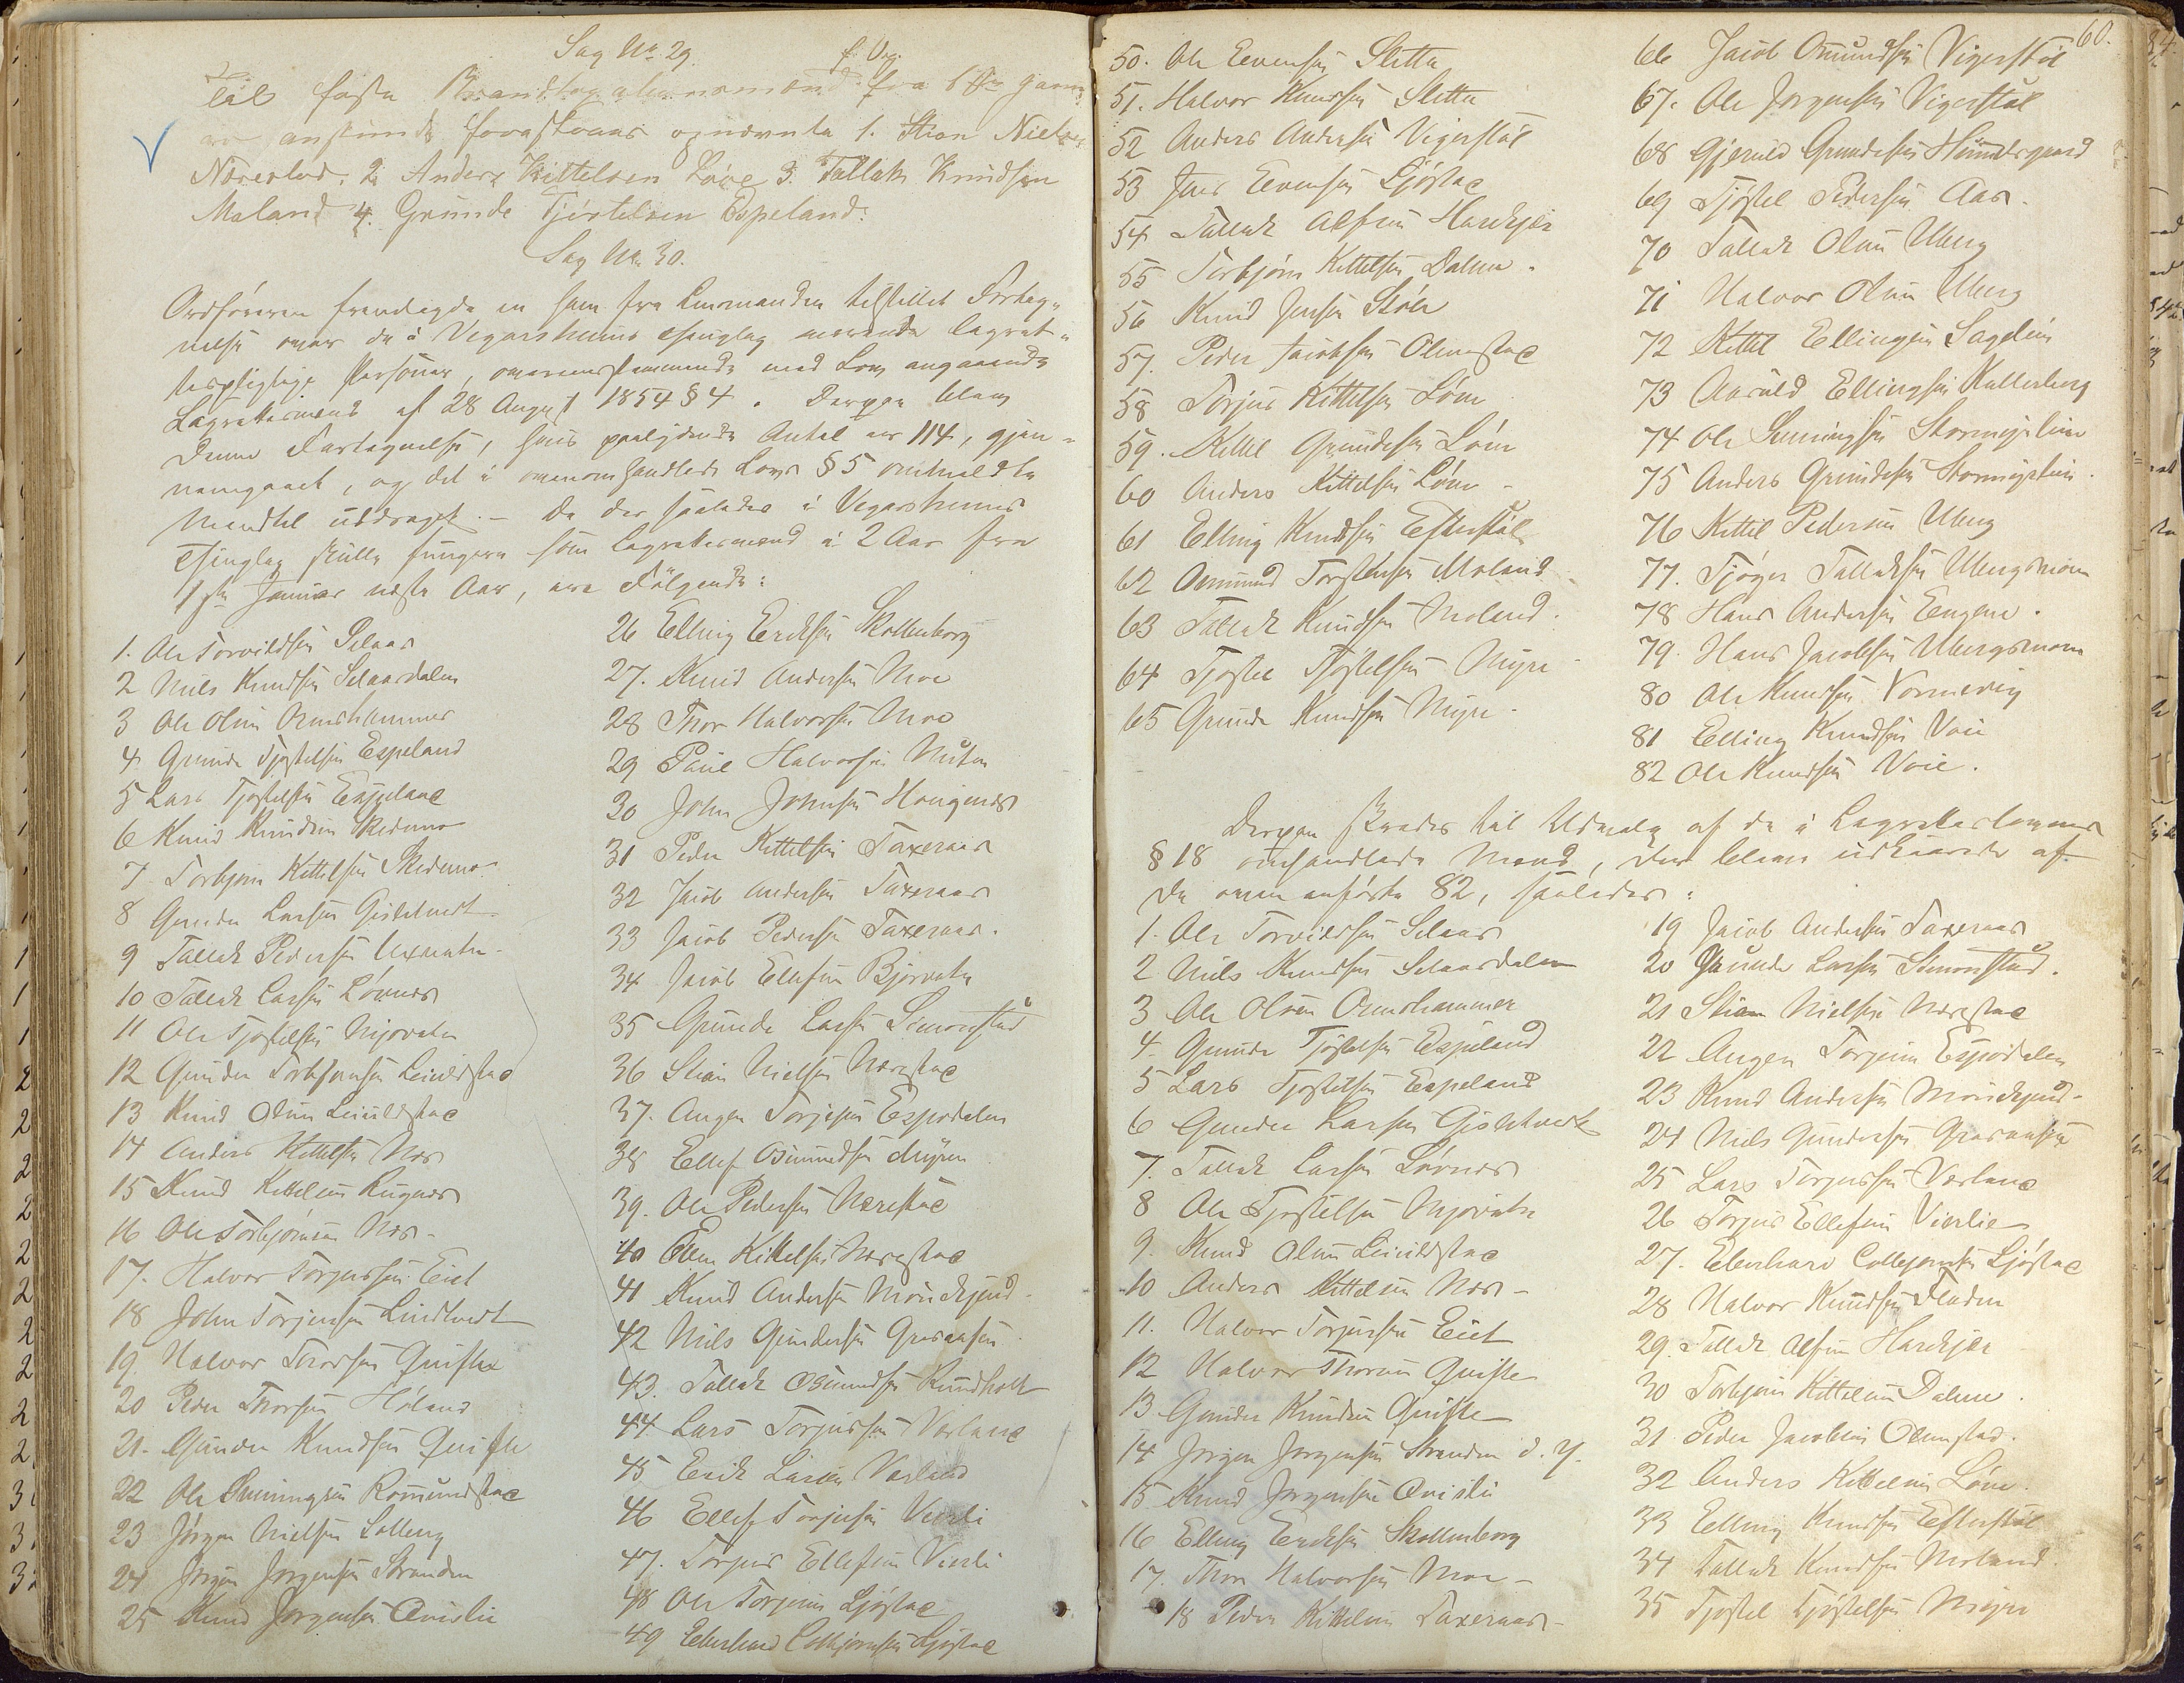 Sag No. 29.
f. Veg.
Til faste Brandtaxationsmænd fra 1ste Januar
anstundende foreslaaes opnævnte 1. Stian Nielsen
Nærestad. 2. Anders Kittelsen Løve 3. Tallak Knudsen
Moland 4. Grunde Tjøstelsen Espeland.
Sag No. 30.
Ordføreren fremlagde en ham fra Lensmanden tilstillet Forteg-
nelse over de i Vegarsheiens Thinglag værende lagret-
tespligtige Personer, overensstemmende med Lov angaaende
Lagrettesmænd af 28 August 1854 § 4. Derpaa blev
denne Fortegnelse, hvis paalydende Antal er 114, gjen-
nemgaaet, og det i ovenomhandlede Lovs § 5 omhandlede
Mandtal uddraget. - De der saaledes i Vegarsheiens
Thinglag skulle fungere som Lagrettesmænd i 2 Aar fra
1ste Januar næste Aar, ere Følgende:
1. Ole Torvildsen Selaas
2 Niels Knudsen Selaasdalen
3 Ole Olsen Ormshammer
4 Grunde Tjøstelsen Espeland
5 Lars Tjøstelsen Espeland
6 Knud Knudsen Skedmo
7 Torbjørn Kittelsen Skedmo
8 Gunder Larsen Gislehvedt
9 Tallak Pedersen Uxvatn
10 Tallak Larsen Løvnes
11 Ole Tjøstelsen Mjovatn
12 Gunder Torbjørnsen Leivildstad
13 Knud Olsen Leivildstad
14 Anders Kittelsen Næs
15 Knud Kittelsen Rugnes
16 Ole Torbjørnsen Næs
17. Halvor Torgersen Eiet
18 John Torjersen Lindtvedt
19. Halvor Thorsen Quifte
20 Peder Thorsen Høland
21. Gunder Knudsen Quifte
22 Ole Sveinungsen Romundstad
23 Jørgen Nielsen Solberg
24 Jørgen Jørgensen Stranden
25 Knud Jørgensen Qvislie
26 Elling Eriksen Skollenborg
27. Knud Andersen Moe
28 Thor Halvorsen Moe
29 Paul Halvorsen Myren
30 John Johnsen Hougenes
31 Peder Kittelsen Taxeraas
32 Jacob Andersen Taxeraas
33 Jacob Pedersen Taxeraas.
34 Jacob Ellefsen Bjorvatn
35 Grunde Larsen Simonstad
36 Stian Nielsen Nærestad
37. Augen Torjesen Espedalen
38 Ellef Osmundsen Myren
39. Ole Pedersen Nærestad
40 Even Kittelsen Nærestad
41 Knud Andersen Mørkjend
42 Niels Gundersen Graaaasen
43. Tallak Osmundsen Rundholt
44 Lars Torjussen Vorland
45 Erik Larsen Vorland
46 Ellef Torjussen Vierli
47. Torjus Ellefsen Vierli
48 Ole Torjesen Ljøstad
49 Eberhard Colbjørnsen Ljøstad
60.
50. Ole Evensen Sletta
51. Halvor Knudsen Sletta
52 Anders Andersen Vigerstøl
53 Jens Evensen Ljøstad
54 Tallak Alfsen Haukjær
55 Torbjørn Kittelsen Dalen.
56 Knud Jensen Støle
57. Peder Jacobsen Olmestad
58 Torjus Kittelsen Løve
59. Kittel Grundesen Løve
60 Anders Kittelsen Løve
61 Elling Knudsen Efterstøl
62 Omund Torstensen Moland
63 Tallak Knudsen Moland.
64 Tjøstel Tjøstelsen Myre
65 Grunde Knudsen Myre
66 Jacob Omundsen Vigerstøl
67. Ole Jørgensen Vigerstøl
68 Gjeruld Grundesen Hundsgaard
69 Tjøstel Pedersen Aas.
70 Tallak Olsen Uberg
71 Halvor Olsen Uberg
72 Kittel Ellingsen Sagelien
73 Aasuld Ellingsen Kallerberg
74 Ole Sveinungsen Stormyrlien
75 Anders Grundesen Stormyrlien.
76 Kittel Pedersen Uberg
77. Tjøger Tallaksen Ubergsmoen
78 Hans Andersen Engene.
79. Hans Jacobsen Ubergsmoen
80 Ole Knudsen Vormeviig
81 Elling Knudsen Voie
82 Ole Knudsen Voie.
Derpaa skredes til Udvalg af de i Lagretteslovens
§ 18 omhandlede Mænd, der bleve udkaarede af
de ovenanførte 82, saaledes:
1. Ole Torvildsen Selaas
2 Niels Knudsen Selaasdalen
3 Ole Olsen Ormshammer
4. Grunde Tjøstelsen Espeland
5 Lars Tjøstelsen Espeland
6 Gunder Larsen Gislehvedt
7. Tallak Larsen Løvnes
8 Ole Tjøstelsen Mjovatn
9. Knud Olsen Leivildstad
10 Anders Kittelsen Næs -
11. Halvor Torjussen Eiet
12 Halvor Thorsen Quifte
13 Gunder Knudsen Quifte
14 Jørgen Jørgensen Stranden d. y.
15 Knud Jørgensen Qvislie
16 Elling Eriksen Skollenborg
17. Thor Halvorsen Moe -
18 Peder Kittelsen Taxeraas -
19 Jacob Andersen Taxeraas
20 Grunde Larsen Simonstad.
21 Stian Nielsen Nærestad
22 Augen Torjesen Espedalen
23 Knud Andersen Mørkjend
24 Niels Gundersen Graaaasen
25 Lars Torjussen Vorland
26 Torjus Ellefsen Vierlie
27. Eberhard Colbjørnsen Ljøstad
28 Halvor Knudsen Fladen
29. Tallak Alfsen Haukjær
30 Torbjørn Kittelsen Dalen.
31 Peder Jacobsen Olmestad.
32 Anders Kittelsen Løve.
33 Elling Knudsen Efterstøl
34 Tallak Knudsen Moland.
35 Tjøstel Tjøstelsen Myre